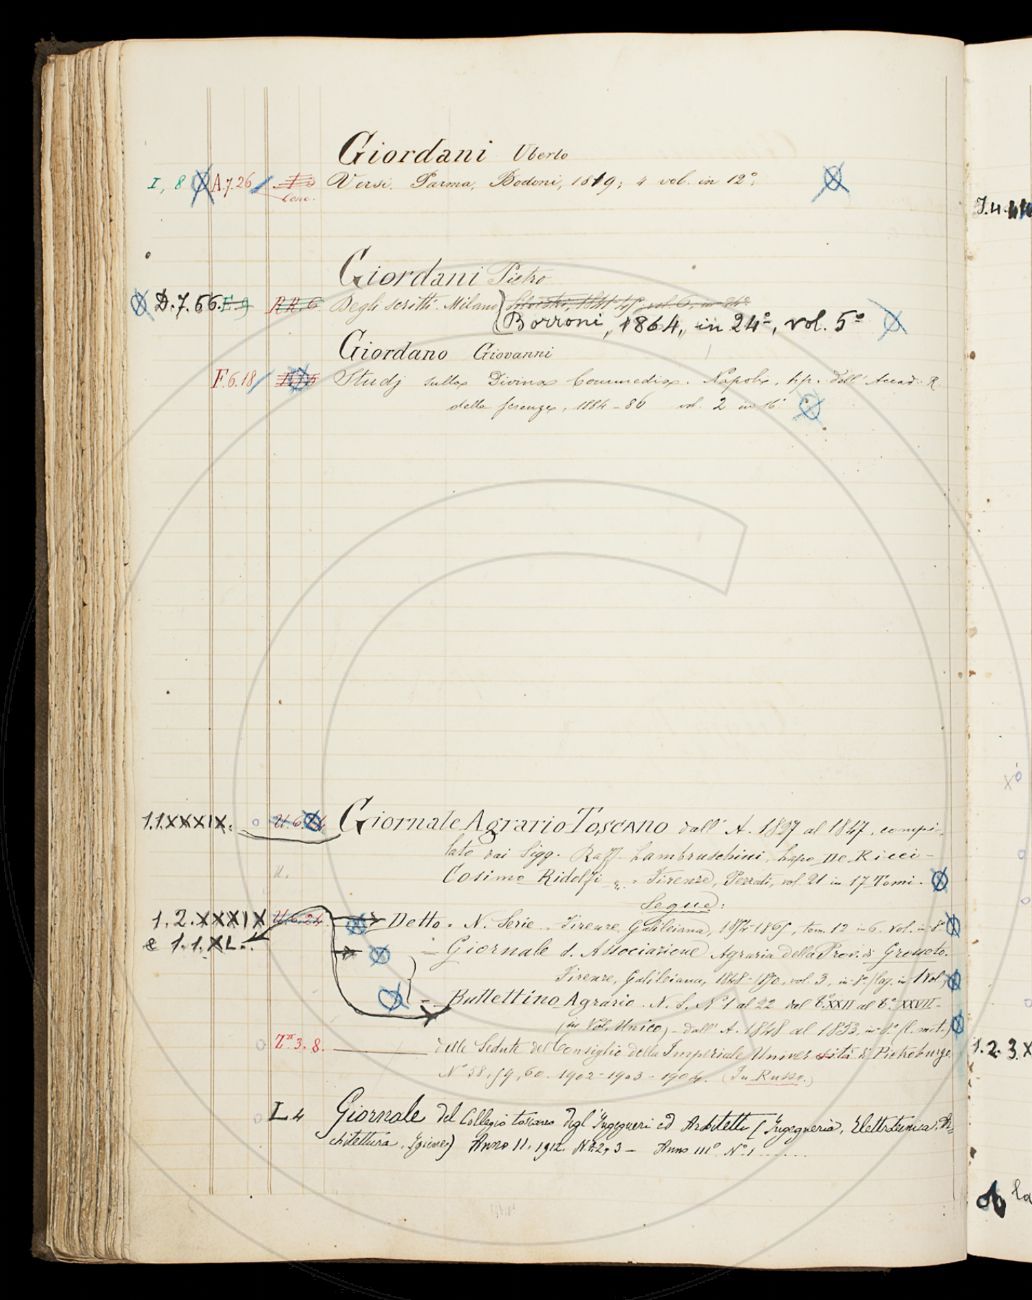 Giordani Uberto
I, 8 A.7.26 Versi. Parma, Bodoni, 1819; 4 vol. in 12°;
Giordani Pietro
D.7.56. F.9 RR.6 Degli scritti. Milano
Borroni, 1864, in 24°, vol. 5°
Giordano Giovanni
F.6.18 Studj sulla Divina Commedia. Napoli, tip. dell'Accad. R.
delle scienze, 1884-86 vol. 2 in 16°
1.1.XXXIX. U.6. Giornale Agrario Toscano dall'A. 1827 al 1847, compi-
lato dai Sigg. Raff. Lambruschini, Lapo De Ricci -
Cosimo Ridolfi - Firenze, Pezzati, vol. 21 in 17 Tomi.
Segue:
1.2.XXXIX U.6.24 Detto - N. Serie - Firenze, Galileiana, tom. 12 in 6. vol. in 8°
e 1.1.XL. - Giornale d. Associazione Agraria della Prov. di Grosseto.
Firenze, Galileiana, vol. 3, in 8°
- Bullettino Agrario - N. S. N° 1 al 22 dal XXII al XXVII -
(in Vol. Unico) - dall'A. 1848 al 1853
3.8. delle Sedute del Consiglio della Imperiale Università di Pietroburgo
N° 58, 59, 60. 1902-1903-1904. (In Russo.)
L 4 Giornale del Collegio toscano degl'Ingegneri ed Architetti (Ingegneria, Elettrotecnica, Ar-
chitettura, Igiene) Anno II. 1912. N. 1, 2, 3 - Anno III° N° 1 ......